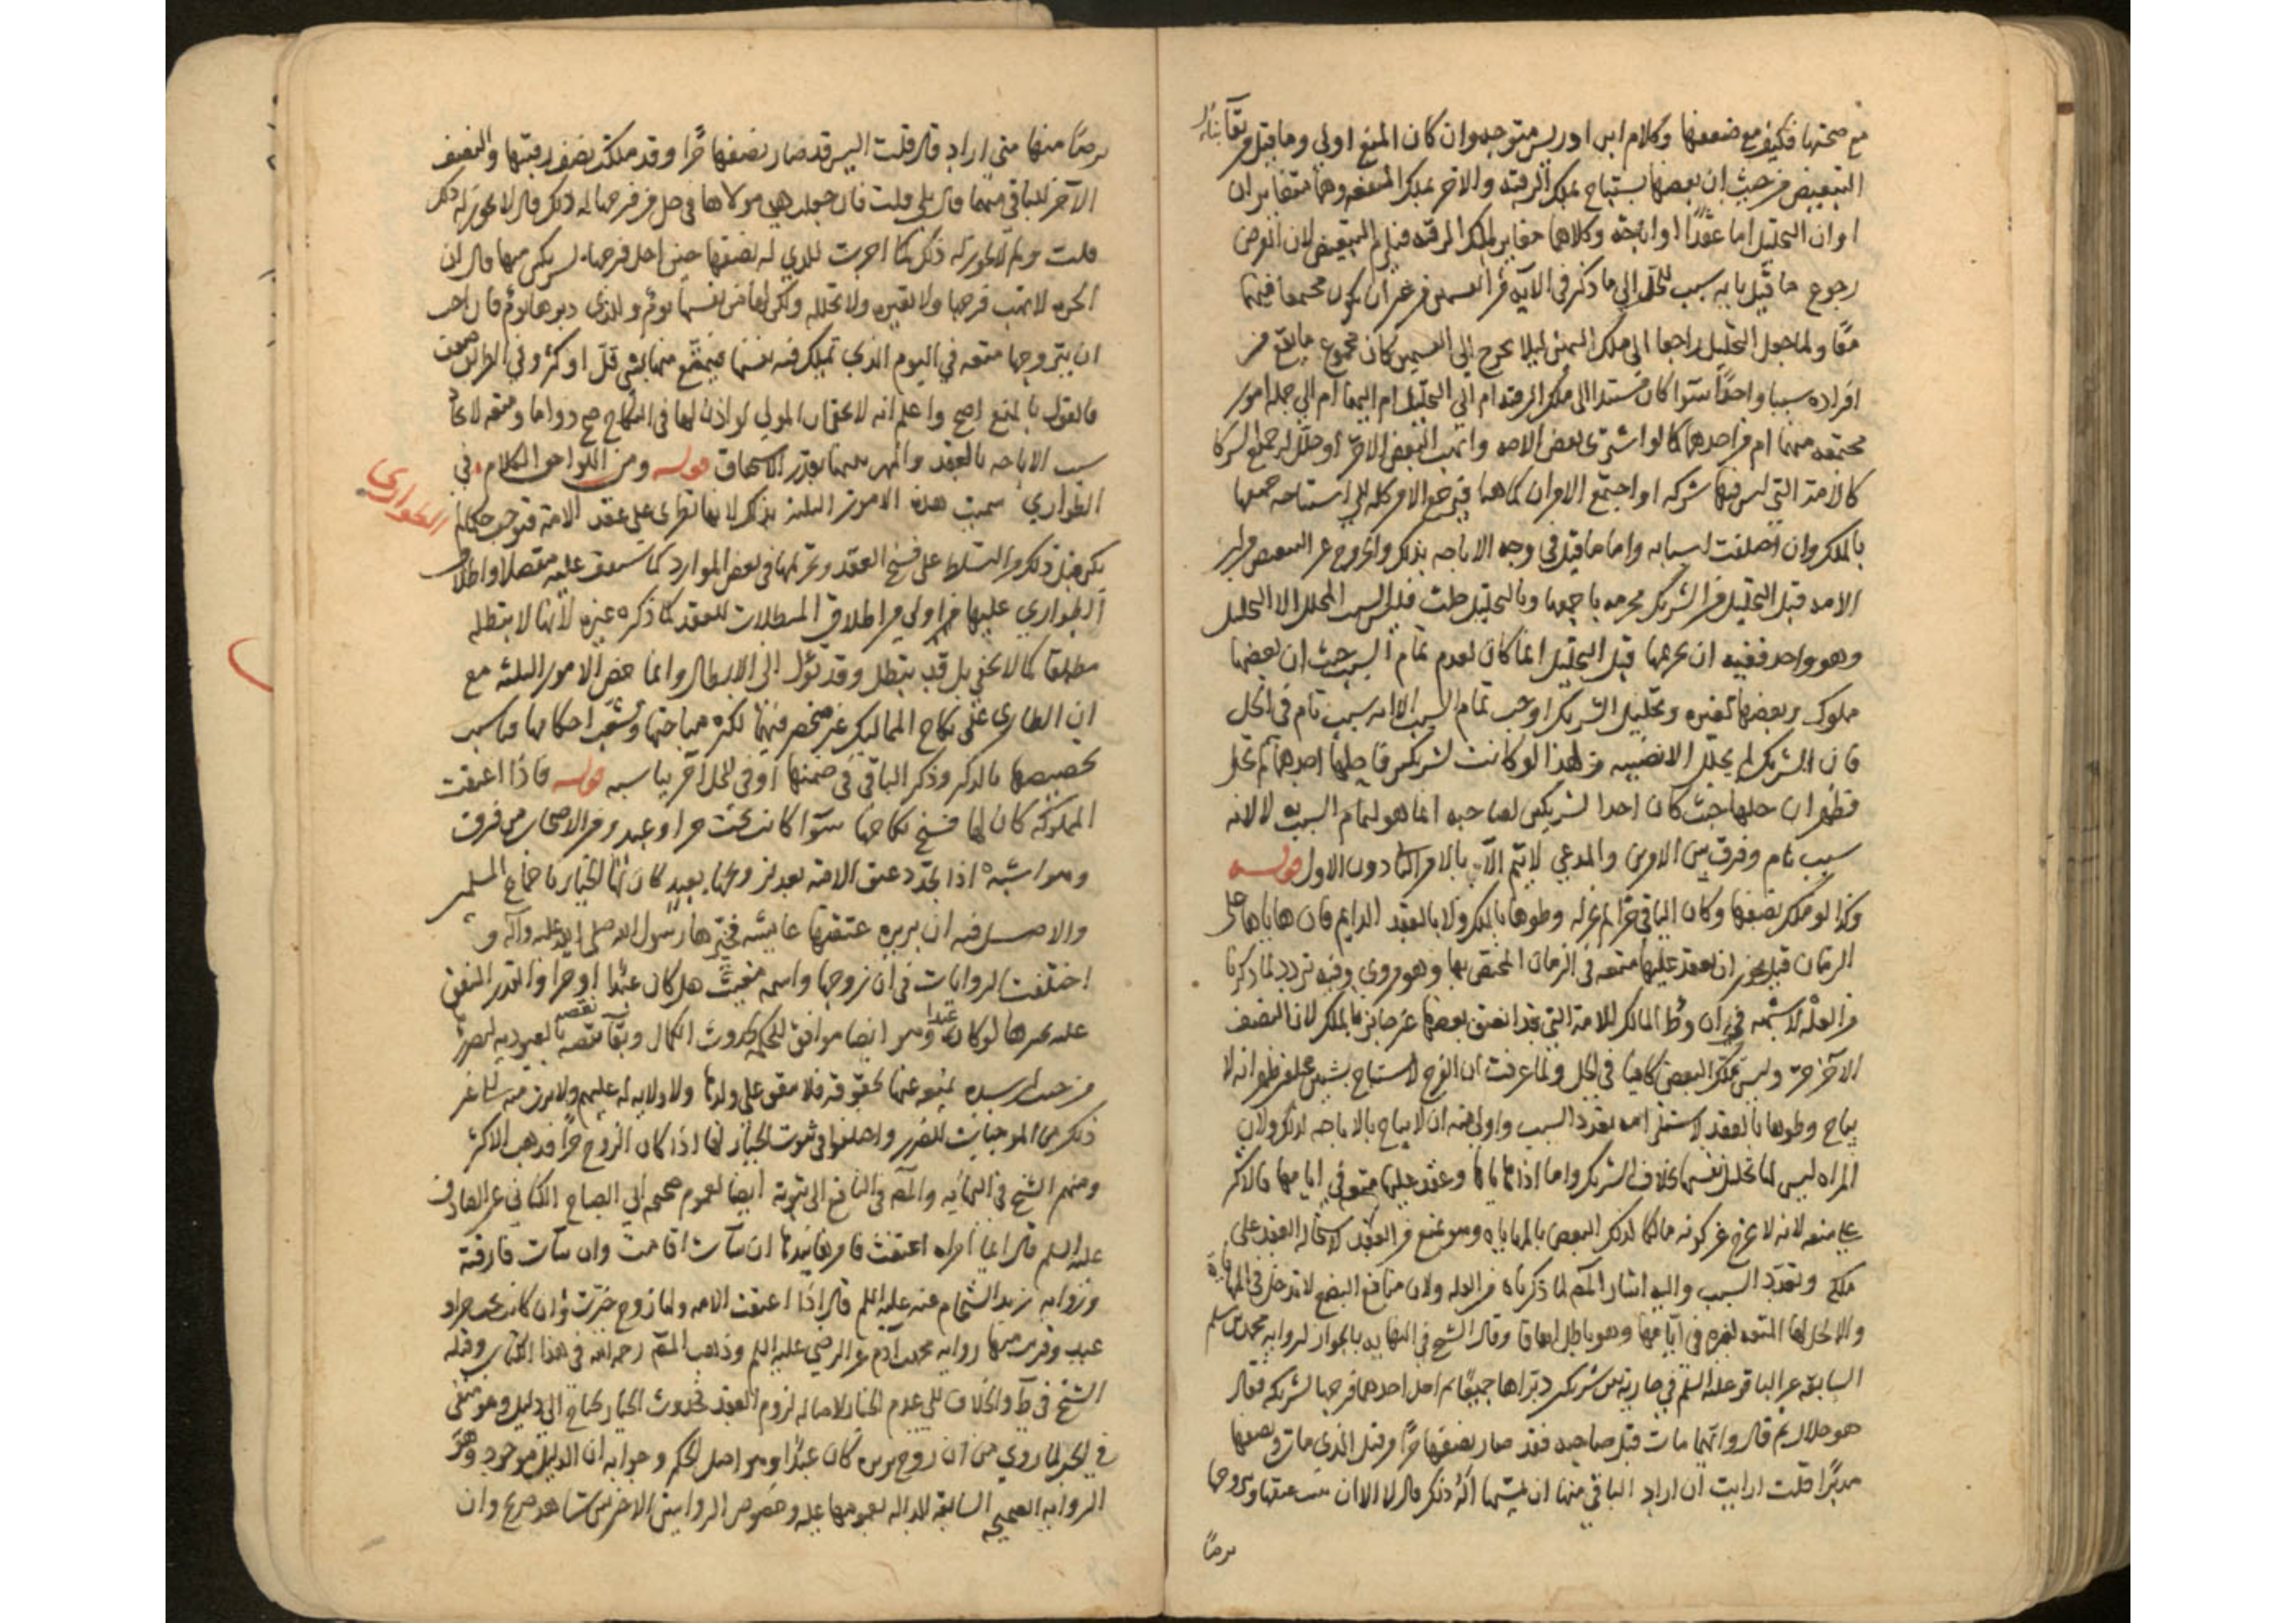 مع صحتها فكيف مع ضعفها وكلام ابن ادريس متوجه وان كان المنع اولى وما قيل من بقاء
التبعيض من حيث ان بعضها يستباح بملك الرقبه والاخر بملك المنفعه وهما متغايران
او ان التحليل اما عقدا او اباحة وكلاهما مغاير لملك الرقبه فيلزم التبعيض لان الغرض
رجوع ما قيل بانه سبب للحل الى ما ذكر في الآيه من القسمين من غير ان يكون مجتمعا فيهما
معا ولما جعل التحليل راجعا الى ملك اليمين ليلا يخرج الى القسمين كان مجموع ما يقع من
افراده سببا واحدا سوآ كان مستندا الى ملك الرقبه ام الى التحليل ام اليهما ام الى جمله امور
مجتمعه منهما ام من احدهما كما لو اشترى بعض الامه واتهب البعض الاخر او حلل له جميع الشركا
كالامة التي ليس فيها شركه او اجتمع الامران كما هنا فيرجع الامر كله الى استباحه جميعها
بالملك وان اختلفت اسبابه واما ما قيل في وجه الاباحه بذلك والخروج عن التبعيض من ان
الامه قبل التحليل من الشريك محرمه باجمعها وبالتحليل حلت فليس السبب المحلل الا التحليل
وهو واحد ففيه ان تحريمها قبل التحليل انما كان لعدم تمام السبب حيث ان بعضها
مملوك وبعضها لغيره وتحليل الشريك اوجب تمام السبب لا انه سبب تام في الحل
فان الشريك لم يحلل الا نصيبه ومن لهذا لو كانت لشريكين فاحلها احدهما لم تحل
فظهر ان حلها حيث كان احد الشريكين لصاحبه انما هو لتمام السبب به لا لانه
سبب تام وفرق بين الامرين والمدعي لا يتم الا بالامر الثاني دون الاول قوله
وكذا لو ملك نصفها وكان الباقي حرا لم يجز له وطوها بالملك ولا بالعقد الدايم فان هاياها على
الزمان قيل يجوز ان يعقد عليها متعه في الزمان المختص بها وهو مروي وفيه تردد لما ذكرنا
من العلة لا شبهه في ان وطئ المالك للامة التي قد انعتق بعضها غير جائز بالملك لان النصف
الآخر حر وليس ملك البعض كافيا في الحل ولما عرفت ان الفرج لا يستباح بشيئين مختلفين ظهر انه لا
يباح وطوها بالعقد لاستلزامه تعدد السبب واولى منه ان لا يباح بالاباحه لذلك ولان
المراه ليس لها تحليل نفسها بخلاف الشريك واما اذا هاياها وعقد عليها متعه في ايامها فالاكثر
على منعه لانه لا يخرج عن كونه مالكا لذلك البعض بالمهاياه وهو ممنوع من العقد لاستحاله العقد على
ملكه وتعدد السبب واليه اشار المصـ لما ذكرناه من العله ولان منافع البضع لا تدخل في المهاياة
والا لحل لها المتعه لغيره في ايامها وهو باطل اتفاقا وقال الشيخ في النهايه بالجواز لروايه محمد بن مسلم
السابقه عن الباقر عليه السلم في جارية بين شريكين دبراها جميعا ثم احل احدهما فرجها لشريكه فقال
هو حلال ثم قال وايهما مات قبل صاحبه فقد صار نصفها حرا من قبل الذي مات ونصفها
مدبرا قلت ارايت ان اراد الباقي منهما ان يمسها اله ذلك قال لا الا ان يبت عتقها ويتزوجها
برضًا
برضًا منها متى اراد قال قلت اليس قد صار نصفها حرا وقد ملكت نصف رقبتها والنصف
الآخر للباقي منهما قال بلى قلت فان جعلت هي مولاها في حل من فرجها له ذلك قال لا يجوز له ذلك
قلت ولم لا يجوز له ذلك كما اجزت للذي له نصفها حين احل فرجها لشريكه منها قال ان
الحره لا تهب فرجها ولا تعيره ولا تحلله ولكن لها من نفسها يوم وللذي دبرها يوم فان احب
ان يتزوجها متعه في اليوم الذي تملك فيه نفسها فيتمتع منها بشي قل او كثر وفي الطريق ضعف
فالقول بالمنع اصح واعلم انه لا يخفى ان المولى لو اذن لها في النكاح صح دواما ومتعه لاتحاد
سبب الاباحه بالعقد والمهر بينهما بقدر الاستحقاق قوله ومن اللواحق الكلام في
الطواري
الطواري سميت هذه الامور الثلثة بذلك لانها تطرى على عقد الامة فتوجب حكما لم
يكن قبل ذلك من التسلط على فسخ العقد وتحريمها في بعض الموارد كما ستقف عليه مفصلا واطلاق
الطواري عليها اولى من اطلاق المبطلات للعقد كما ذكره غيره لانها لا يبطله
مطلقا كما لا يخفى بل قد يبطل وقد تؤل الى الابطال وانما خص الامور الثلثه مع
ان الطارى على نكاح المماليك غير منحصر فيها لكثره مباحثها وتشعب احكامها فناسب
تخصيصها بالذكر وذكر الباقي في ضمنها او في محل آخر يناسبه قوله فاذا اعتقت
المملوكة كان لها فسخ نكاحها سوآ كانت تحت حر او عبد ومن الاصحاب من فرق
وهو اشبه اذا تجدد عتق الامة بعد تزويجها بعبد كان لها الخيار باجماع المسلمين
والاصل فيه ان بريره عتقتها عايشه فخيرها رسول الله صلى الله عليه وآله و
اختلفت الروايات في ان زوجها واسمه مغيث هل كان عبدا او حرا والقدر المتفق
عليه تخييرها لو كان عبدا وهو ايضا موافق للحكمة لحدوث الكمال وبقاء نقصه بالعبوديه لضرر
من حيث ان سيده يمنعه عنها بحقوقه فلا ينفق على ولدها ولا ولايه له عليهم ولا يرث منه الى غير
ذلك من الموجبات للضرر واختلفوا في ثبوت الخيار لها اذا كان الزوج حرا فذهب الاكثر
ومنهم الشيخ في النهايه والمصـ في النافع الى ثبوته ايضا لعموم صحيحه ابي الصباح الكناني عن الصادق
عليه السلم قال ايما امراه اعتقت فامرها بيدها ان شآت اقامت وان شآت فارقته
وروايه زيد الشحام عنه عليه السلم قال اذا اعتقت الامه ولها زوج خيرت وان كانت تحت حر او
عبد وقريب منها روايه محمد بن آدم عن الرضي عليه السلم وذهب المصـ رحمه الله في هذا الكتاب وقبله
الشيخ في ط والخلاف الى عدم الخيار لاصاله لزوم العقد فحدوث الخيار يحتاج الى دليل وهو منتفى
في الحر لما روي من ان زوج بريره كان عبدا وهو اصل الحكم وجوابه ان الدليل موجود وهو
الروايه الصحيحه السابقه الداله بعمومها عليه وخصوص الروايتين الاخيرتين شاهد صريح وان